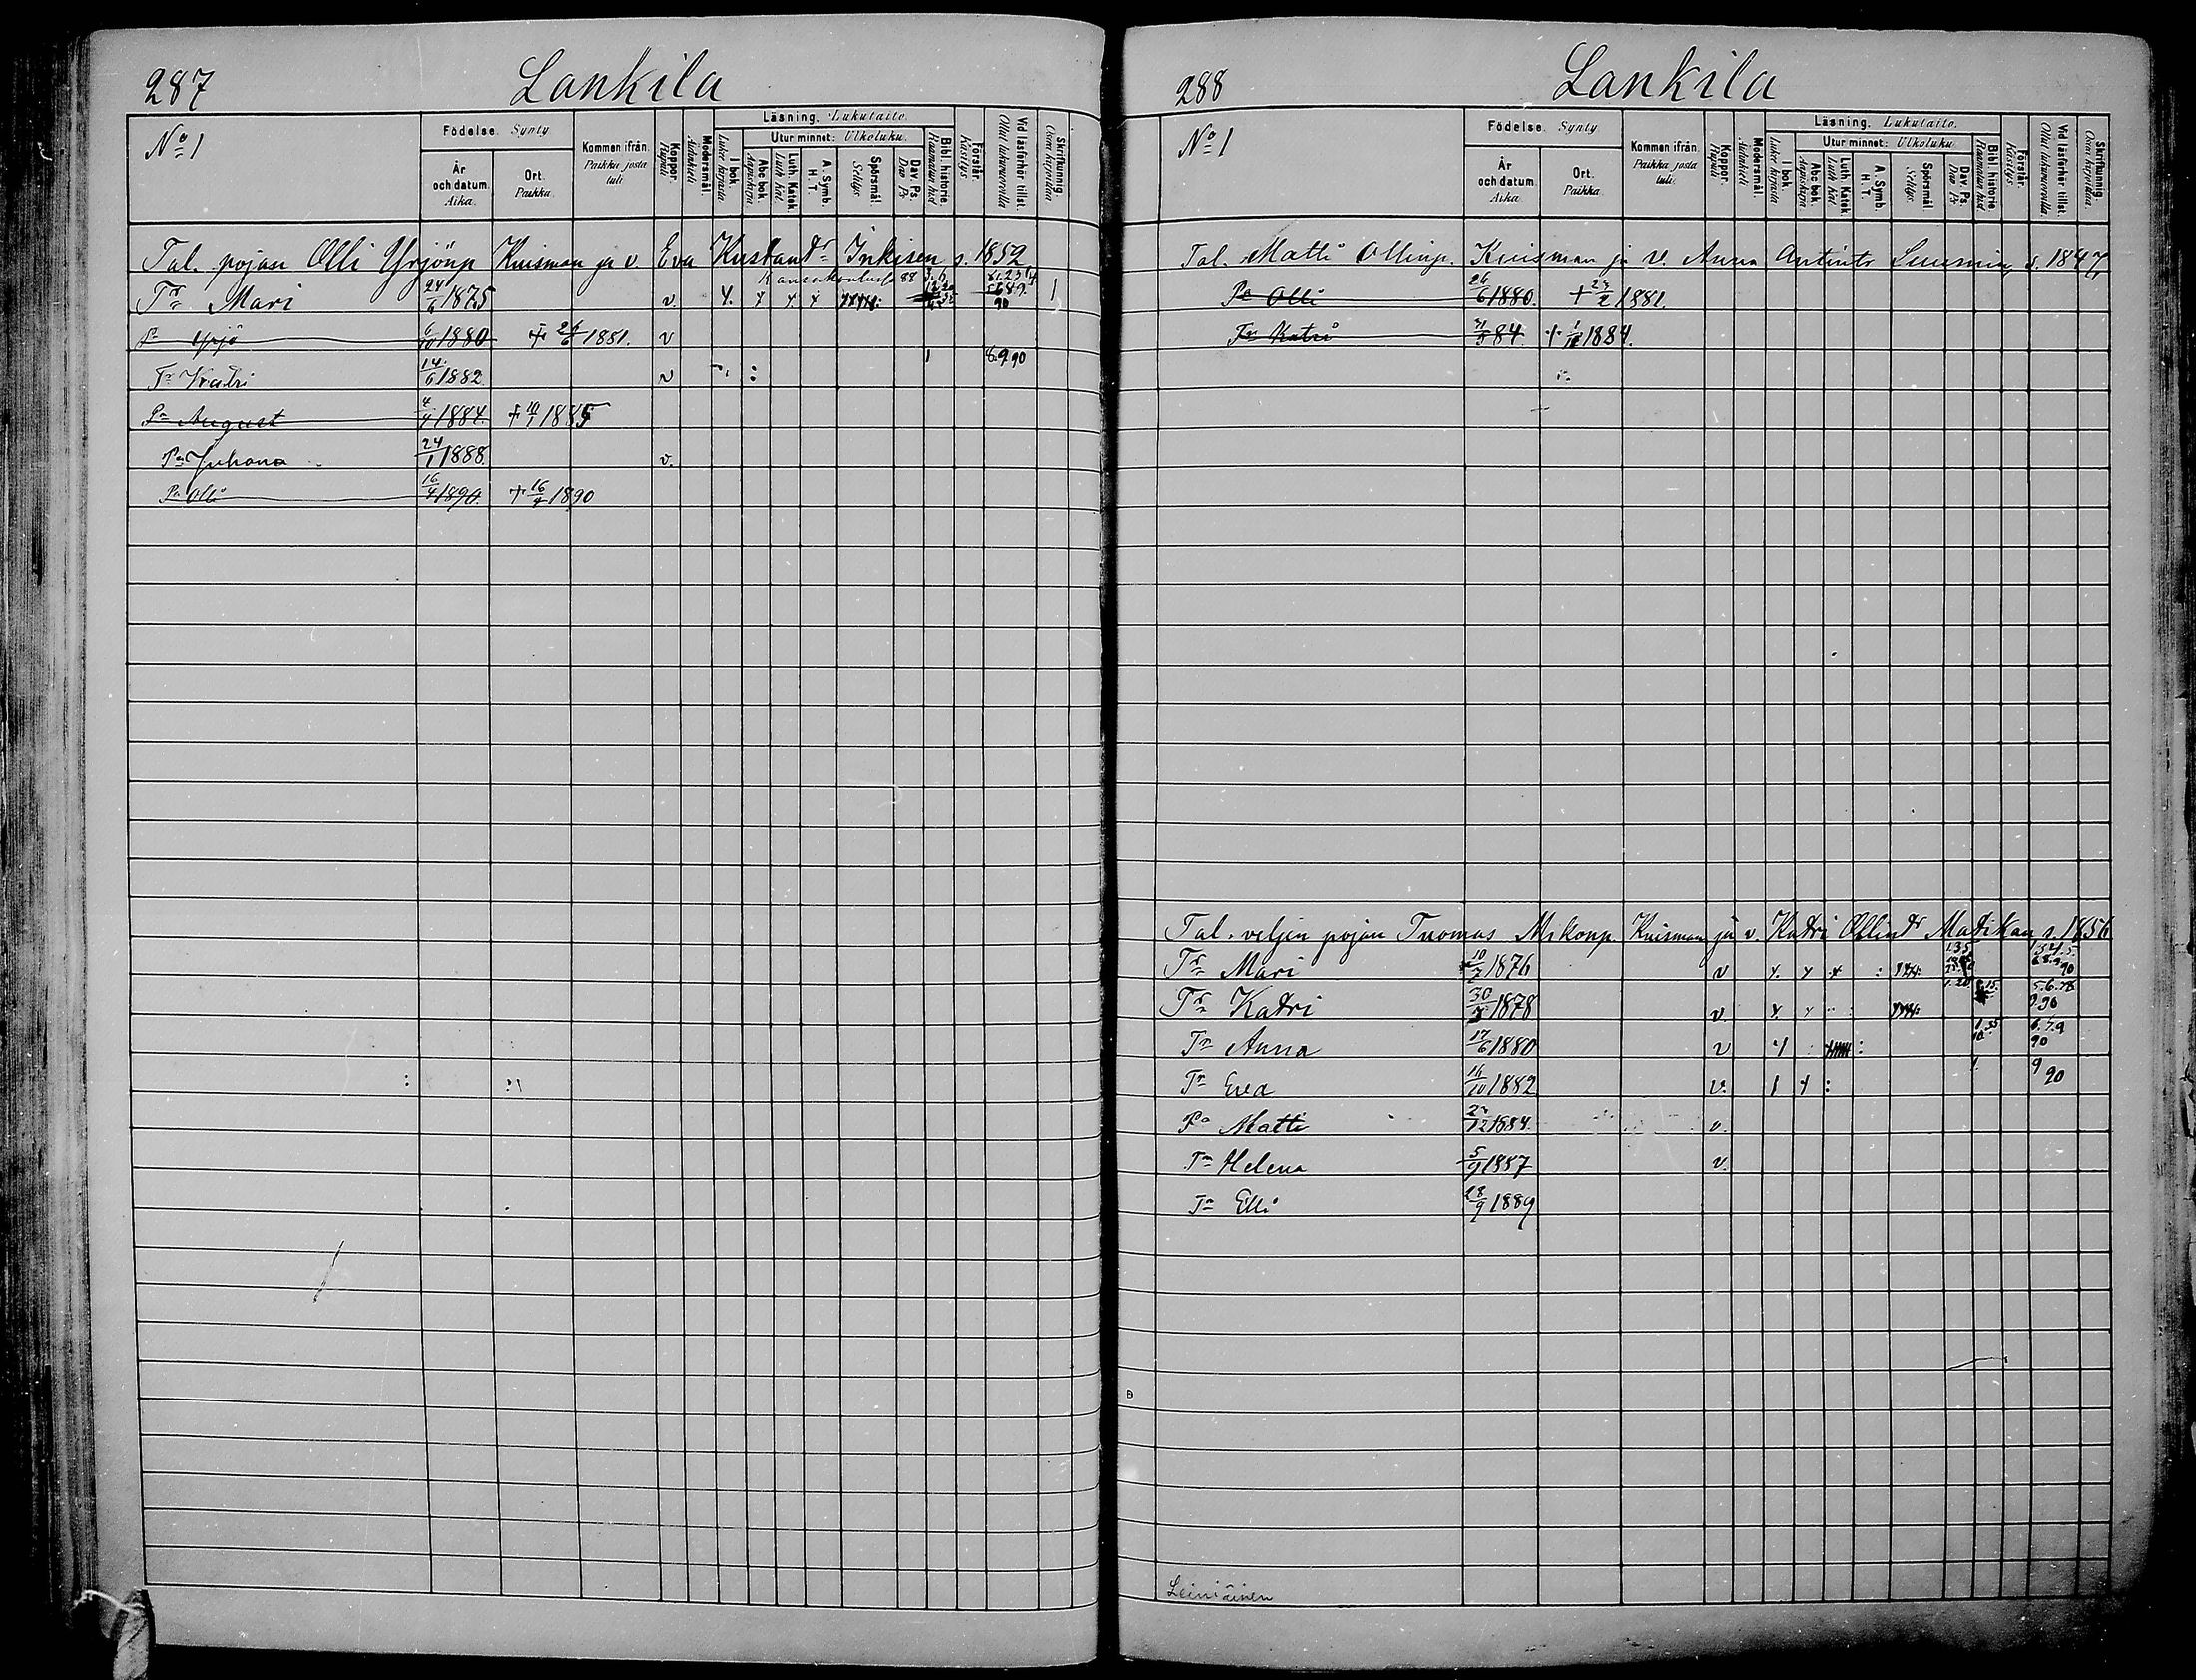 287 Lankila
No 1
Födelse. Synty.
År och datum. Aika.
Ort. Paikka.
Kommen ifrån. Paikka josta tuli.
Koppor. Rupuli
Modersmål. Äidinkieli
Läsning. Lukutaito.
I bok. Luku kirjasta.
Utur minnet: Ulkoluku.
Abc bok. Aapiskirja
Luth. Katek. Luth. kat.
A. Symb. H. T.
Spörsmål. Selitys.
Dav. Ps. Dav. Ps.
Bibl. historie. Raamatun hist.
Förstår. Käsitys
Vid läsförhör tillst. Ollut lukuvuorolla
Skrifkunnig. Osaa kirjoittaa
Tal. pojan Olli Yrjönp Kuisman ja v. Eva Kustantr Inkisen s. 1852
Kansakoulusta 88
Tr Mari 24/6 1875 v. 1
Pa Yrjö 6/10 1880 + 26/6 1881. v
Tr Katri 14/6 1882. v 1 8.9.90
Pa August 4/4 1884. + 10/1 1885
Pa Juhana 24/1 1888. v.
Pa Olli 16/4 1890. + 16/4 1890
288 Lankila
No 1
Födelse. Synty
År och datum. Aika.
Ort. Paikka.
Kommen ifrån. Paikka josta tuli.
Koppor. Rupuli
Modersmål. Äidinkieli
Läsning. Lukutaito.
I bok. Luku kirjasta
Utur minnet: Ulkoluku.
Abc bok. Aapiskirja
Luth. Katek. Luth. kat.
A. Symb. H. T.
Spörsmål. Selitys.
Dav. Ps. Dav. Ps.
Bibl. historie. Raamatun hist.
Förstår. Käsitys
Vid läsförhör tillst. Ollut lukuvuorolla.
Skrifkunnig. Osaa kirjoittaa.
Tal. Matti Ollinp. Kuisman ja v. Anna Antintr s. 1847,
Pa Olli 26/6 1880. + 23/2 1881.
Tr Katri 84. + 1884.
Tal. veljen pojan Tuomas Mikonp. Kuisman ja v. Katri Ollintr Matikan s. 1856
Tr Mari 10/7 1876 v
Tr Katri 30/7 1878 v. 9.90
Tr Anna 17/6 1880 v 6.7.9 90
Tr Eva 16/10 1882 v. 1. 9 90
Pa Matti 1884. v.
Tr Helena 5/9 1887 v.
Tr Elli 28/9 1889
Leiniäinen